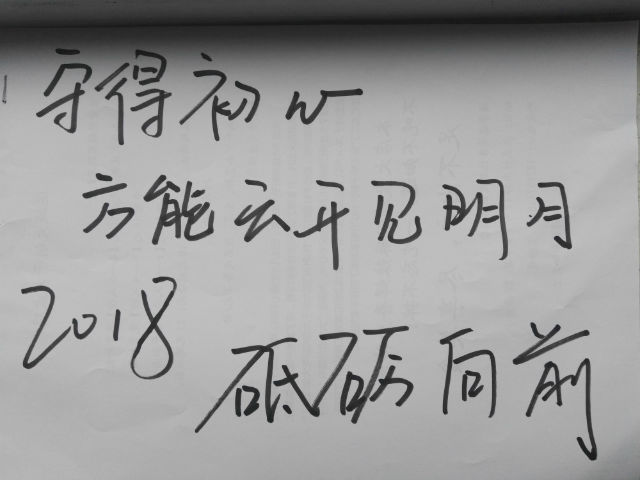 守得初心
方能云开见明月
2018
砥砺向前